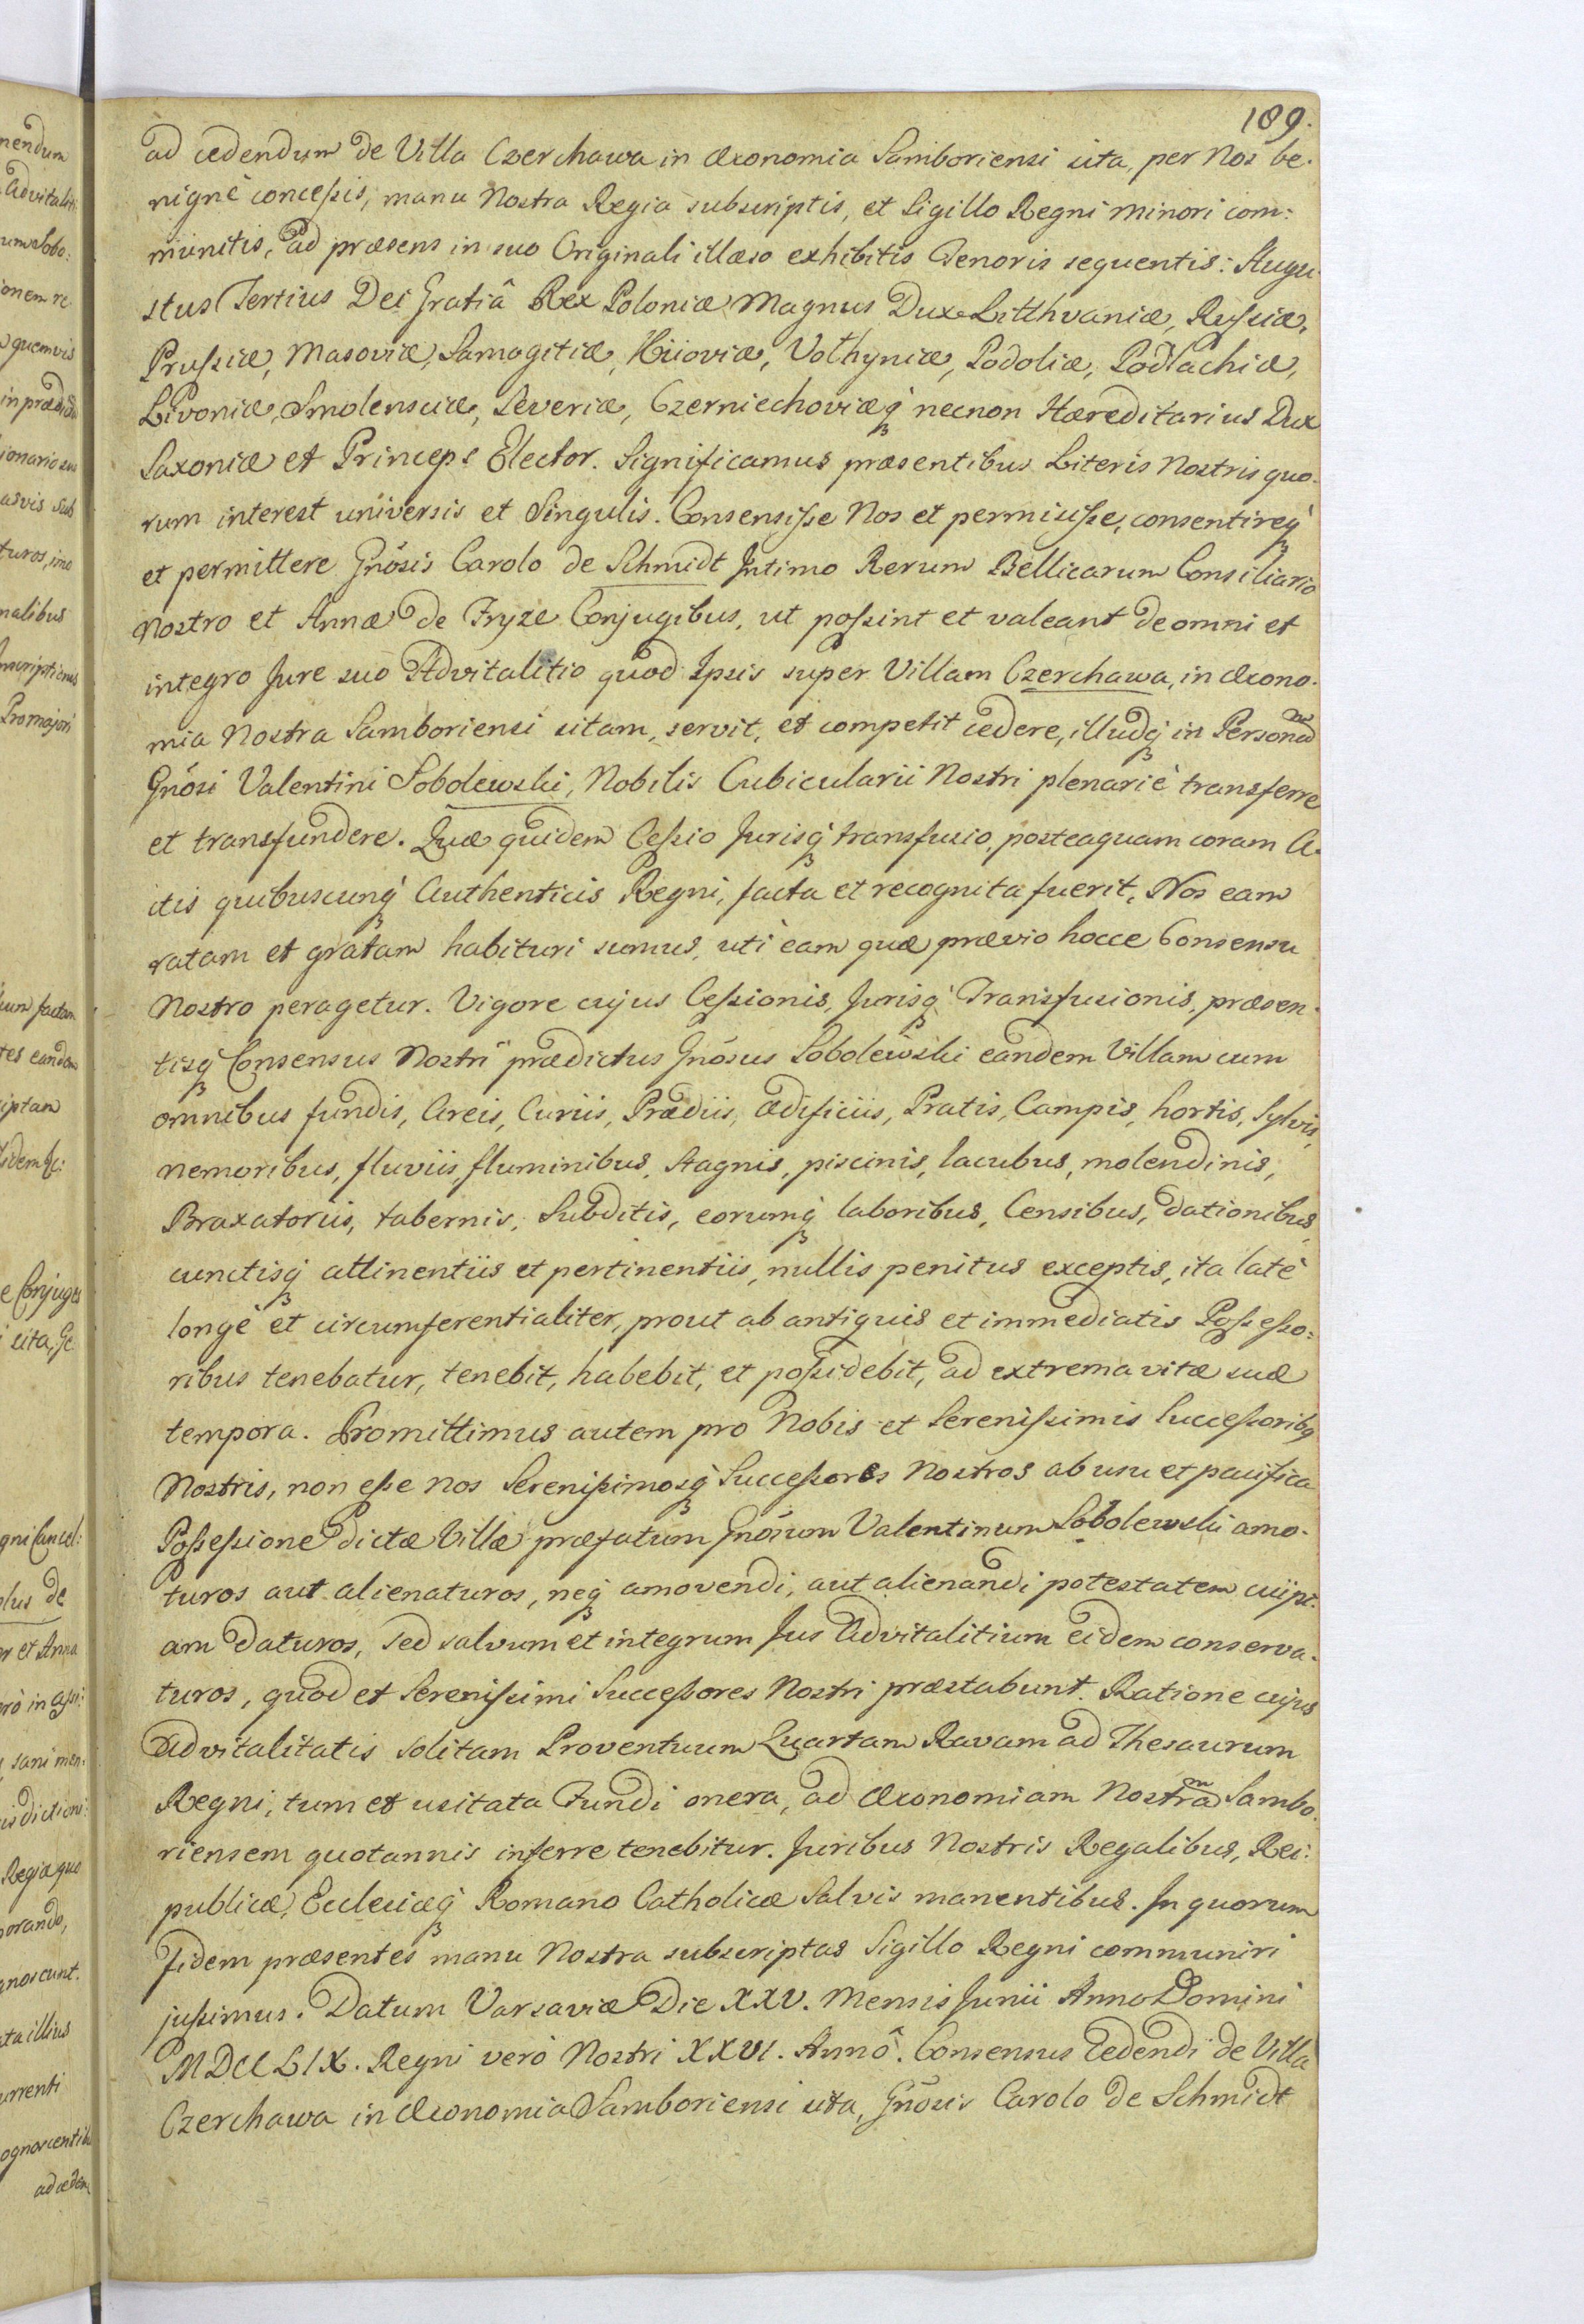 189.
ad cedendum de Villa Czerchawa in Œconomia Samboriensi sita, per Nos be-
nignè concessis, manu Nostra Regia subscriptis, et Sigillo Regni minori com:
munitis, ad præsens in suo Originali illæso exhibitis Tenoris sequentis: Augu-
stus Tertius Dei Gratiâ Rex Poloniæ Magnus Dux Litthvaniæ, Russiæ,
Prussiæ, Masoviæ, Samogitiæ, Kiioviæ, Volhyniæ, Podoliæ, Podlachiæ,
Livoniæ, Smolensciæ, Severiæ, Czerniechoviæq́ necnon Hæreditarius Dux
Saxoniæ et Princeps Elector. Significamus præsentibus Literis Nostris quo-
rum interest universis et Singulis. Consensisse Nos et permisisse, consentireq́
et permittere Gnősis Carolo de Schmidt Intimo Rerum Bellicarum Consiliario
Nostro et Annæ de Fryze Conjugibus, ut possint et valeant de omni et
integro Jure suo Advitalitio quod Ipsis super Villam Czerchawa, in Œcono-
mia Nostra Samboriensi sitam, servit, et competit cedere, illudq́ in Personam
Gnősi Valentini Sobolewski, Nobilis Cubicularii Nostri plenariè transferre
et transfundere. Quæ quidem Cessio Jurisq́ transfusio, posteaquam coram A-
ctis quibuscunq́ Authenticis Regni, facta et recognita fuerit, Nos eam
ratam et gratam habituri sumus, uti eam quæ prævio hocce Consensu
Nostro peragetur. Vigore cujus Cessionis, Jurisq́ Transfusionis, præsen-
tisq́ Consensus Nostri prædictus Gnősus Sobolewski eandem Villam cum
omnibus fundis, Areis, Curiis, Prædiis, ædificiis, Pratis, Campis, hortis, Sylvis,
nemoribus, fluviis, fluminibus, stagnis, piscinis, lacubus, molendinis,
Braxatoriis, tabernis, Subditis, eorumq́ laboribus, Censibus, dationibus,
cunctisq́ attinentiis et pertinentiis, nullis penitus exceptis, ita latè
longè et circumferentialiter, prout ab antiquis et immediatis Possesso:
ribus tenebatur, tenebit, habebit, et possidebit, ad extrema vitæ suæ
tempora. Promittimus autem pro Nobis et Serenissimis Successoribq
Nostris, non esse nos Serenissimosq́ Successores Nostros ab usu et pacifica
Possessione dictæ Villæ præfatum Gnősum Valentinum Sobolewski amo-
turos aut alienaturos, neq́ amovendi, aut alienandi potestatem cuipi-
am daturos, sed salvum et integrum Jus Advitalitium eidem conserva-
turos, quod et Serenissimi Successores Nostri præstabunt. Ratione cujus
advitalitatis solitam Proventuum Quartam Ravam ad Thesaurum
Regni, tum et usitata Fundi onera, ad Œconomiam Nostram Sambo-
riensem quotannis inferre tenebitur. Juribus Nostris Regalibus, Rei:
publicæ, Ecclesiæq́ Romano Catholicæ Salvis manentibus. In quorum
Fidem præsentes manu Nostra subscriptas Sigillo Regni communiri
jussimus. Datum Varsaviæ Die XXV. Mensis Junii Anno Domini
MDCCLIX. Regni verò Nostri XXVI. Annô. Consensus Cedendi de Villa
Czerchawa in Œconomia Samboriensi sita, Gnősis Carolo de Schmidt